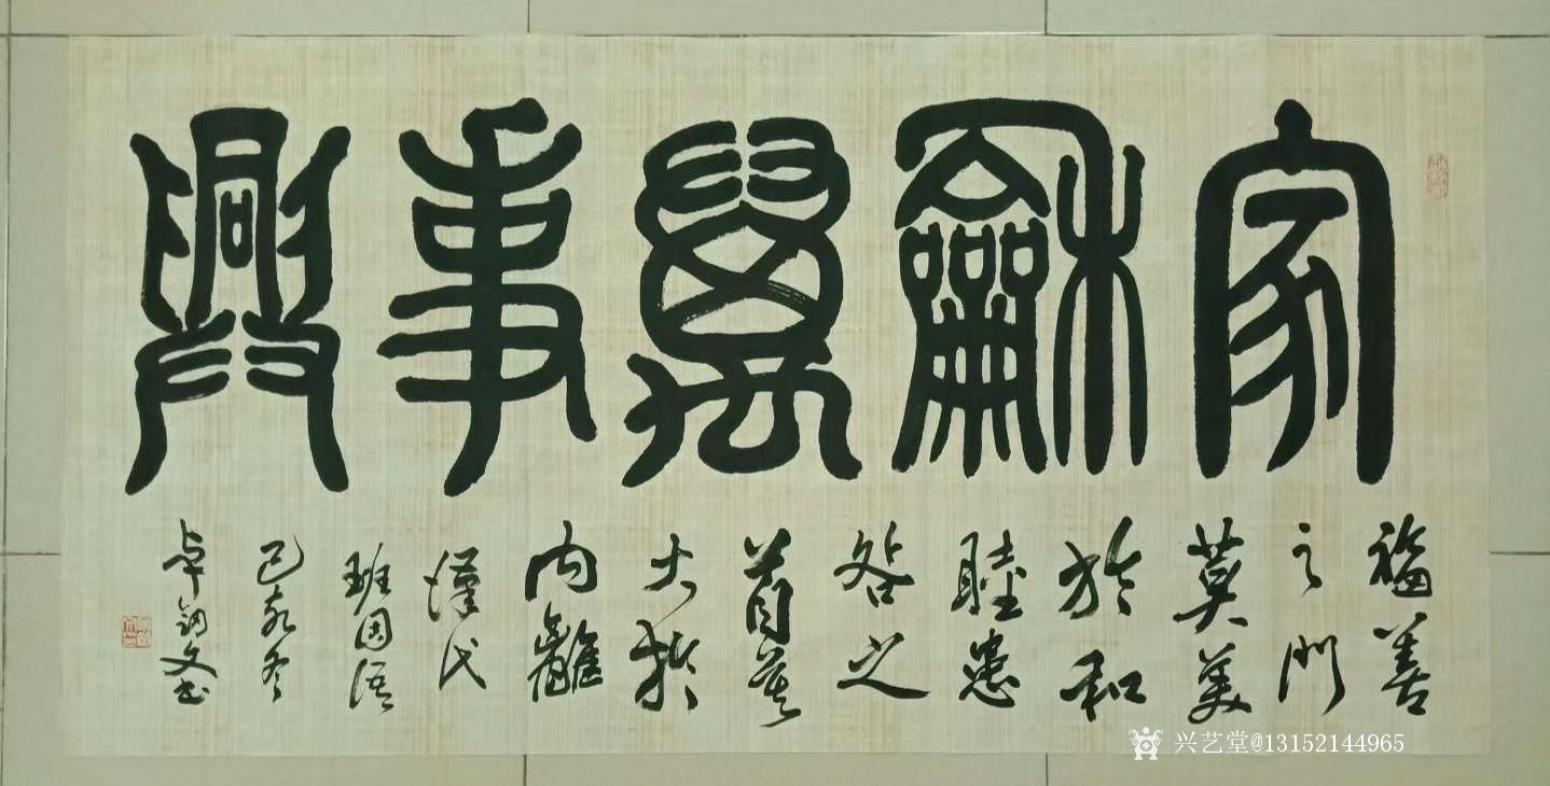 家龢萬事興
福善
之門
莫美
於和
睦患
咎之
首莫
大於
内離
漢代
班固語
己亥冬
卓鈞文書
兴艺堂@13152144965